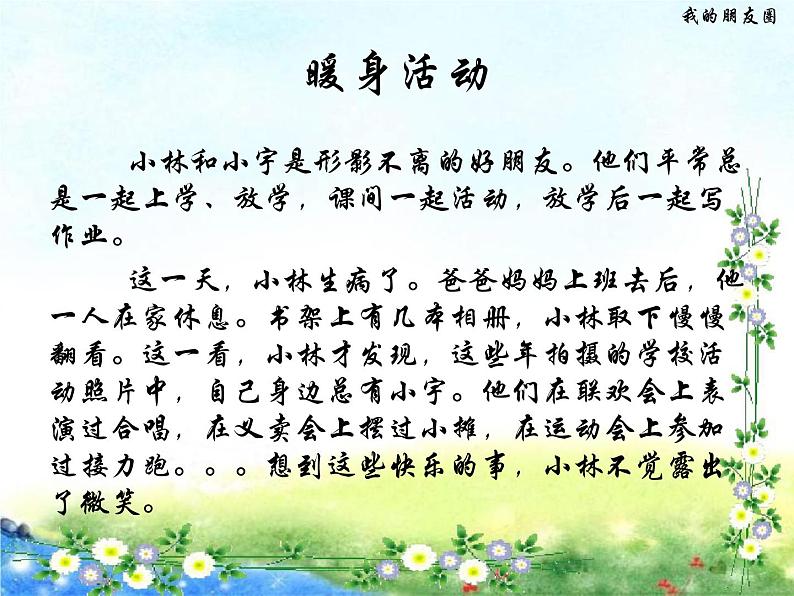 我的朋友圈
暖身活动
小林和小宇是形影不离的好朋友。他们平常总
是一起上学、放学，课间一起活动，放学后一起写
作业。
这一天，小林生病了。爸爸妈妈上班去后，他
一人在家休息。书架上有几本相册，小林取下慢慢
翻看。这一看，小林才发现，这些年拍摄的学校活
动照片中，自己身边总有小宇。他们在联欢会上表
演过合唱，在义卖会上摆过小摊，在运动会上参加
过接力跑。。。想到这些快乐的事，小林不觉露出
了微笑。